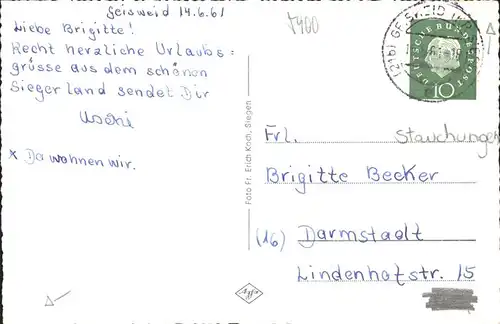 Geisweid 14.6.61
Liebe Brigitte!
Recht herzliche Urlaubs=
grüsse aus dem schönen
Siegerland sendet Dir
Uschi
* Da wohnen wir.
Foto Fr. Erich Koch, Siegen
Agfa
7400
(21b) GEISWEID
DEUTSCHE BUNDESPOST
10
Frl. Stauchungen
Brigitte Becker
(16) Darmstadt
Lindenhofstr. 15